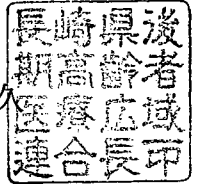 長崎県後
期高齢者
医療広域
連合長印
久